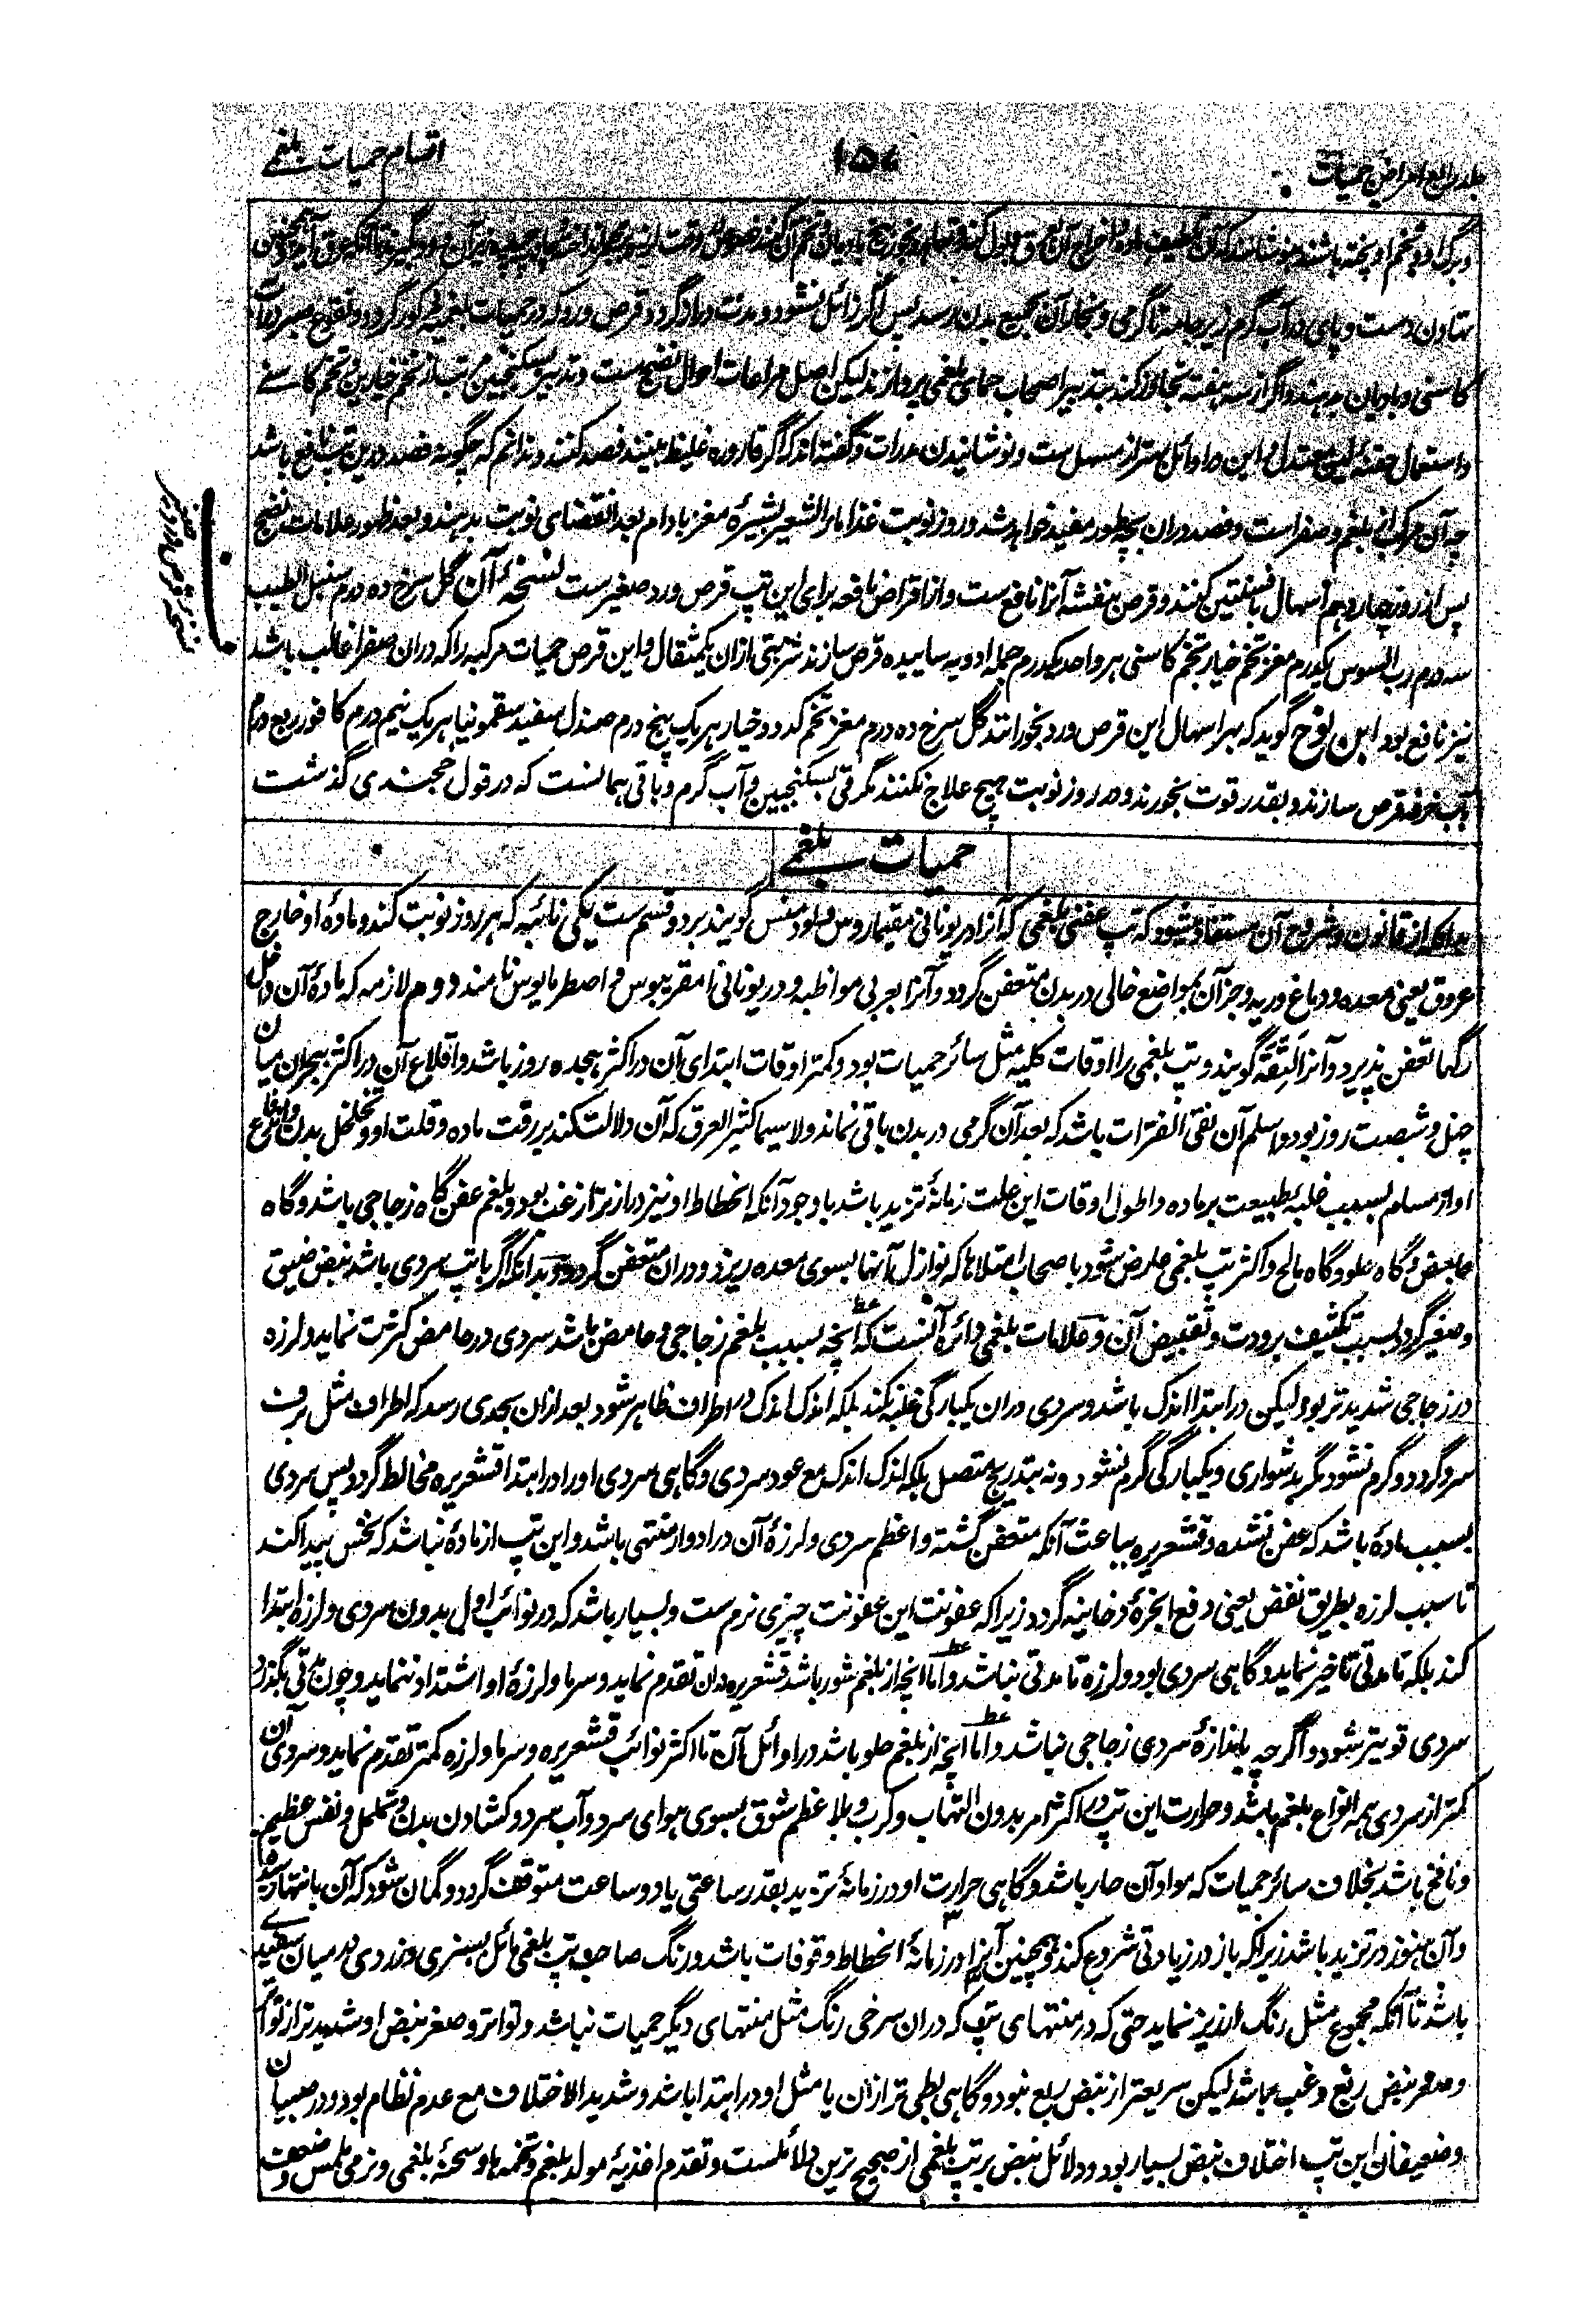 جلد رابع امراض حمیات
۱۵۷
اقسام حمیات بلغمے
وبرگ او و تخم او پخته باشند بنوشانند که آن
نهادن دست و پای در آب گرم زیر جامه تا گرمی و بخار آن بجمیع بدن رسد پس اگر زائل نشود و مدت دراز گردد قرص ورد که در حمیات بلغمیه مذکور گردد و نقوع صبر در آب
کاسنی و بادیان بدهند و اگر از سه هفته تجاوز کند بتدبیر اصحاب حمای بلغمی پردازند لیکن اصل مراعات احوال نضج ست و تدبیر سکنجبین مرتب از تخم خیارین و تخم کاسنے
و استعمال حقنه لین معتدل این در اوائل بهتر از مسهل ست و نوشانیدن مدرات و گفته اند که اگر قاروره غلیظ بینند فصد کنند و ندانم که چگونه فصد درین تپ نافع باشد
چه آن مرکب از بلغم و صفرا است و فصد دران بچه طور مفید خواهد شد و روز نوبت غذا ماء الشعیر بشیرهٔ مغز بادام بعد انقضای نوبت بدهند و بعد ظهور علامات نضج
پس از روز چهاردهم اسهال بافسنتین کنند و قرص بنفشه آنرا نافع ست و از اقراص نافعه برای این تپ قرص ورد صغیر ست نسخهٔ آن گل سرخ ده درم سنبل الطیب
سه درم رب السوس یکدرم مغز تخم خیار تخم کاسنی هر واحد یکدرم جمله ادویه ساییده قرص سازند شربتی ازان یکمثقال و این قرص حمیات مرکبه را که دران صفرا غالب باشد
نیز نافع بود ابن نوح گوید که بهر اسهال این قرص ورد بخورانند گل سرخ ده درم مغز تخم کدو و خیار هر یک پنج درم صندل سفید سقمونیا هر یک نیم درم کافور ربع درم
بآب خرفه قرص سازند و بقدر قوت بخورند و در روز نوبت هیچ علاج نکنند مگر قی بسکنجبین و آب گرم و باقی همانست که در قول خجندی گذشت
حمیات بلغمے
بدانکه از قانون و شروح آن مستفاد میشود که تپ عفنی بلغمی که آنرا در یونانی مقیماروس فلود منس گویند بر دو قسم ست یکی نائبه که هر روز نوبت کند و مادهٔ او خارج
عروق یعنی معده و دماغ و ریه و جز آن بمواضع خالی در بدن متعفن گردد و آنرا بعربی مواظبه و در یونانی امقریبوس و اصطرمایوس نامند دوم لازمه که مادهٔ آن داخل
رگها تعفن پذیرد و آنرا لَثِقَه گویند و تپ بلغمی را اوقات کلیه مثل سائر حمیات بود و کمتر اوقات ابتدای آن در اکثر هیجده روز باشد و اقلاع آن در اکثر ببحران میان
چهل و شصت روز بود و اسلم آن نقی الفترات باشد که بعد آن گرمی در بدن باقی نماند ولا سیما کثیر العرق که آن دلالت کند بر رقت ماده و قلت او و تخلخل بدن و
او از مسام بسبب غلبهٔ طبیعت بر ماده و اطول اوقات این علت زمانهٔ تزید باشد با وجود آنکه انحطاط او نیز دراز تر از غب بود و بلغم عفن گاه زجاجی باشد و گاه
حامض و گاه حلو و گاه مالح و اکثر تپ بلغمی عارض شود باصحاب امتلاها که نوازل آنها بسوی معده ریزد و دران متعفن گردد و بدانکه اگر باتپ سردی باشد نبض ضیق
و صغیر گردد بسبب تکثیف برودت و تقبیض آن و علامات بلغمی دائره آنست که آنچه بسبب بلغم زجاجی و حامض باشد سردی در حامض کثرت نماید و لرزه
در زجاجی شدید تر بود لیکن در ابتدا اندک باشد و سردی دران یکبارگی غلبه نکند بلکه اندک اندک در اطراف ظاهر شود بعد ازان بحدی رسد که اطراف مثل برف
سرد گردد و گرم نشود مگر بدشواری و یکبارگی گرم نشود و نه بتدریج متصل بلکه اندک اندک مع عود سردی و گاهی سردی او را در ابتدا قشعریره مخالط گردد پس سردی
بسبب مادهٔ باشد که عفن نشده و قشعریره بباعث آنکه متعفن گشته و اعظم سردی و لرزهٔ آن در ادوار منتهی باشد و این تپ از مادهٔ نباشد که نخس پیدا کند
تا سبب لرزه بطریق نفض یعنی دفع ابخرهٔ دخانیه گردد زیرا که عفونت این عفونت چیزی نرم ست و بسیار باشد که در نوائب اول بدون سردی و لرزه ابتدا
کند بلکه تا مدتی تاخیر نماید و گاهی سردی بود و لرزه تا مدتی نباشد و اما آنچه از بلغم شور باشد قشعریره دران تقدم نماید و سرما و لرزهٔ او اشتداد ننماید و چون مدتی بگذرد
سردی قوی تر شود و اگرچه باندازهٔ سردی زجاجی نباشد و اما آنچه از بلغم حلو باشد در اوائل آن تا اکثر نوائب قشعریره و سرما و لرزه کمتر تقدم نماید و سردی آن
کمتر از سردی همه انواع بلغم باشد و حرارت این تپ در اکثر امر بدون التهاب و کرب و بلا عظم شوق بسوی هوای سرد و آب سرد و کشادن بدن و تململ و نفس عظیم
و نافخ باشد بخلاف سائر حمیات که مواد آن حار باشد و گاهی حرارت او در زمانهٔ تزید بقدر ساعتی یا دو ساعت متوقف گردد و گمان شود که آن بانتها رسید
و آن هنوز در تزید باشد زیرا که باز در زیادتی شروع کند و همچنین آنرا در زمانهٔ انحطاط وقوفات باشد و رنگ صاحب تپ بلغمی مائل بسبزی و زردی در میان سفیدے
باشد تا آنکه مجموع مثل رنگ ارزیز نماید حتی که در منتهای تپ که دران سرخی رنگ مثل منتهای دیگر حمیات نباشد و تواتر و صغر نبض او شدید تر از تواتر
و صغر نبض ربع و غب باشد لیکن سریعتر از نبض ربع نبود و گاهی بطی تر ازان یا مثل او در ابتدا باشد و شدید الاختلاف مع عدم نظام بود و در صبیان
و ضعیفان این تپ اختلاف نبض بسیار بود و دلائل نبض بر تپ بلغمی از صحیح ترین دلائلست و تقدم اغذیهٔ مولد بلغم و تخمه ها و سحنهٔ بلغمی و نرمی ملمس و ضعف